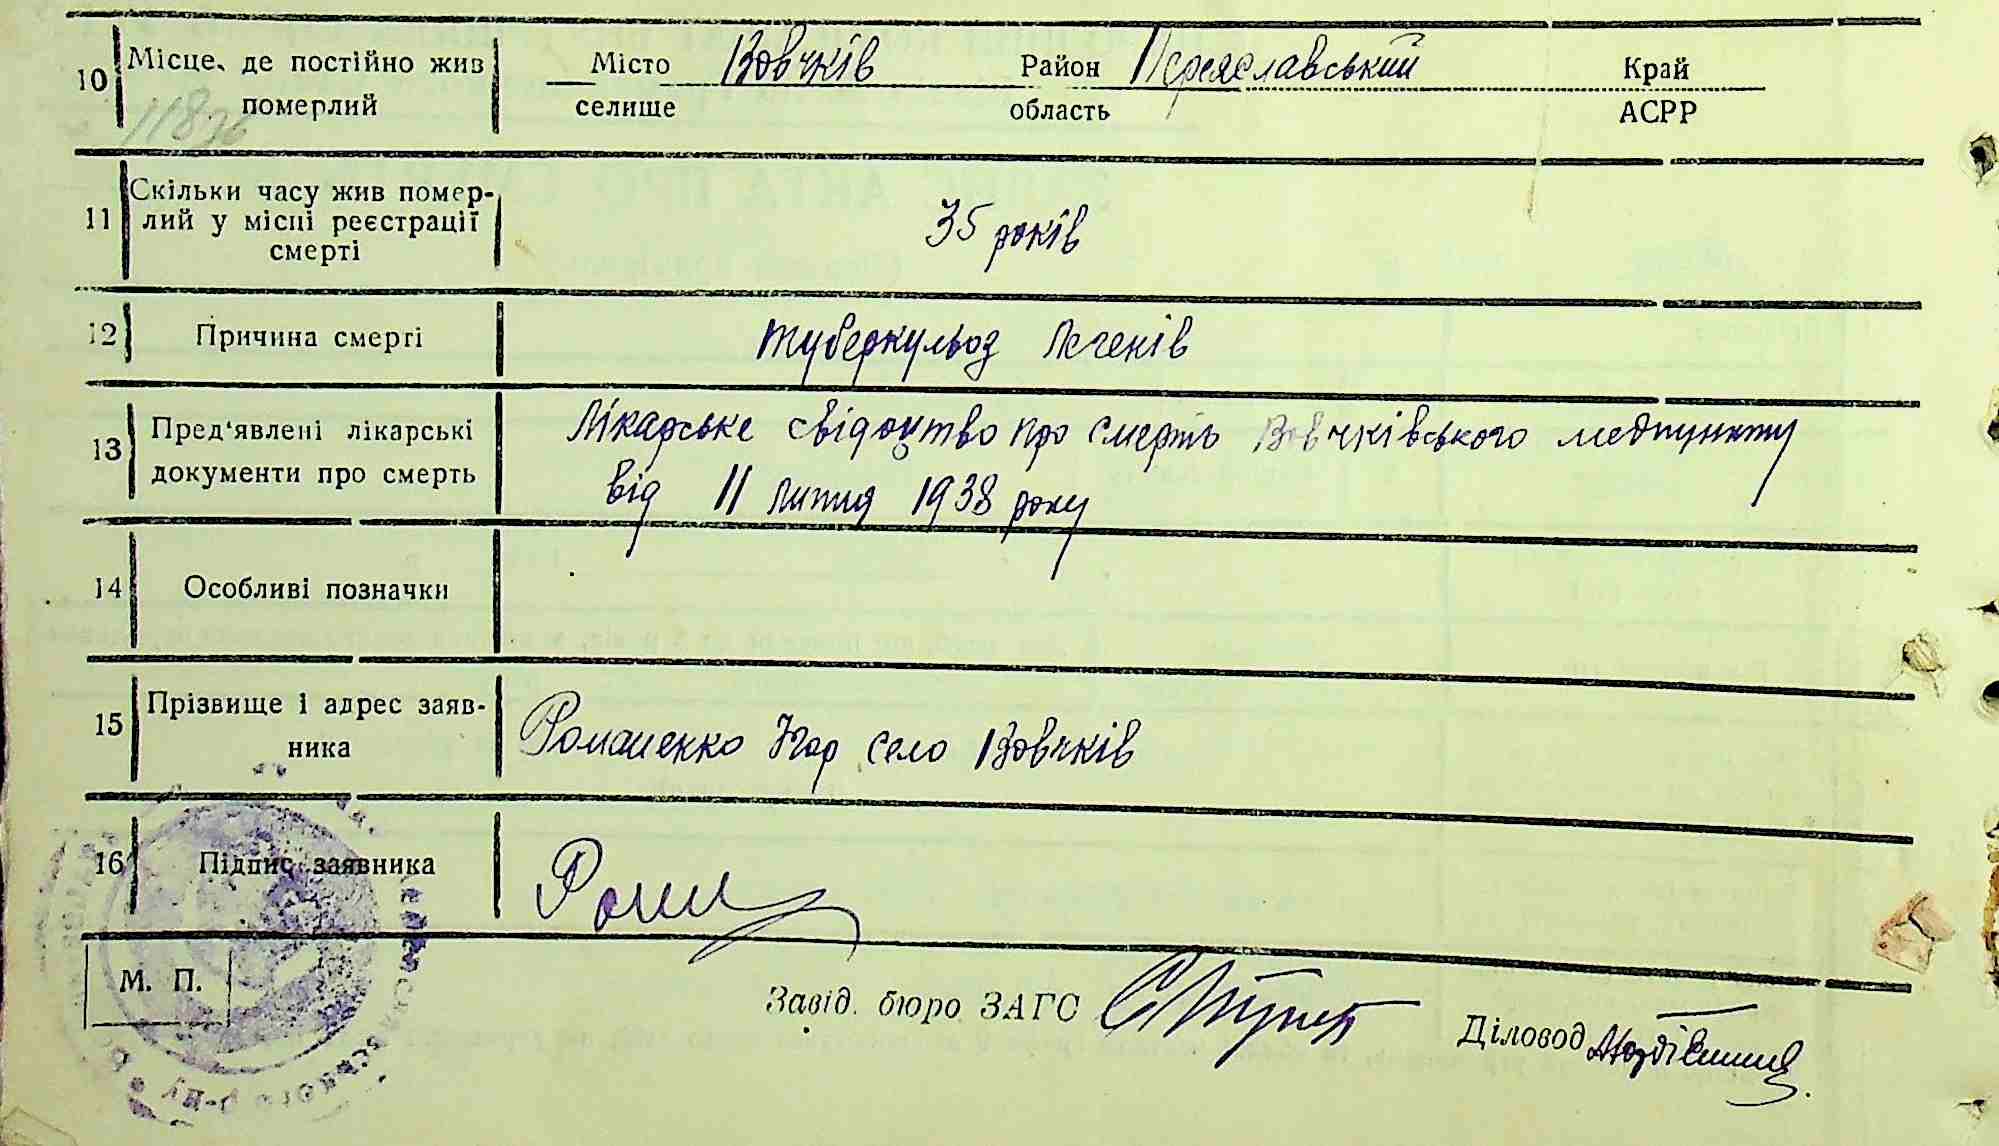 10 Місце, де постійно жив померлий Місто селище Вовчків Район область Переяславський Край АСРР
11 Скільки часу жив помер-
лий у місці реєстрації
смерті 35 років
12 Причина смерті туберкульоз легенів
13 Пред'явлені лікарські Лікарське свідоцтво про смерть Вовчківського медпункту
документи про смерть від 11 липня 1938 року
14 Особливі позначки
15 Прізвище і адрес заяв-
ника Романенко село Вовчків
16 Підпис заявника
М. П.
Завід. бюро ЗАГС
Діловод